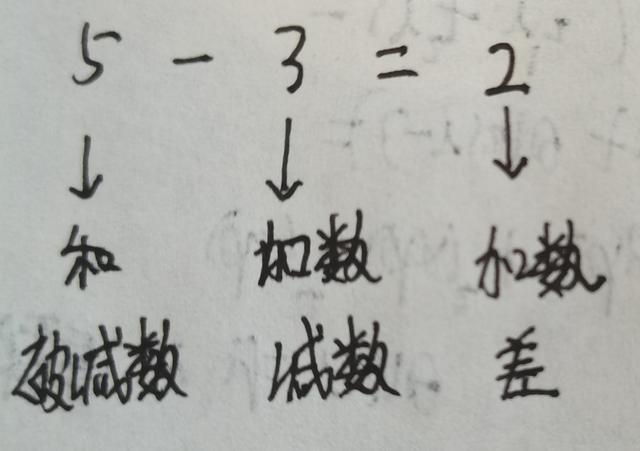 5 - 3 = 2
↓ ↓ ↓
和 加数 加数
被减数 减数 差